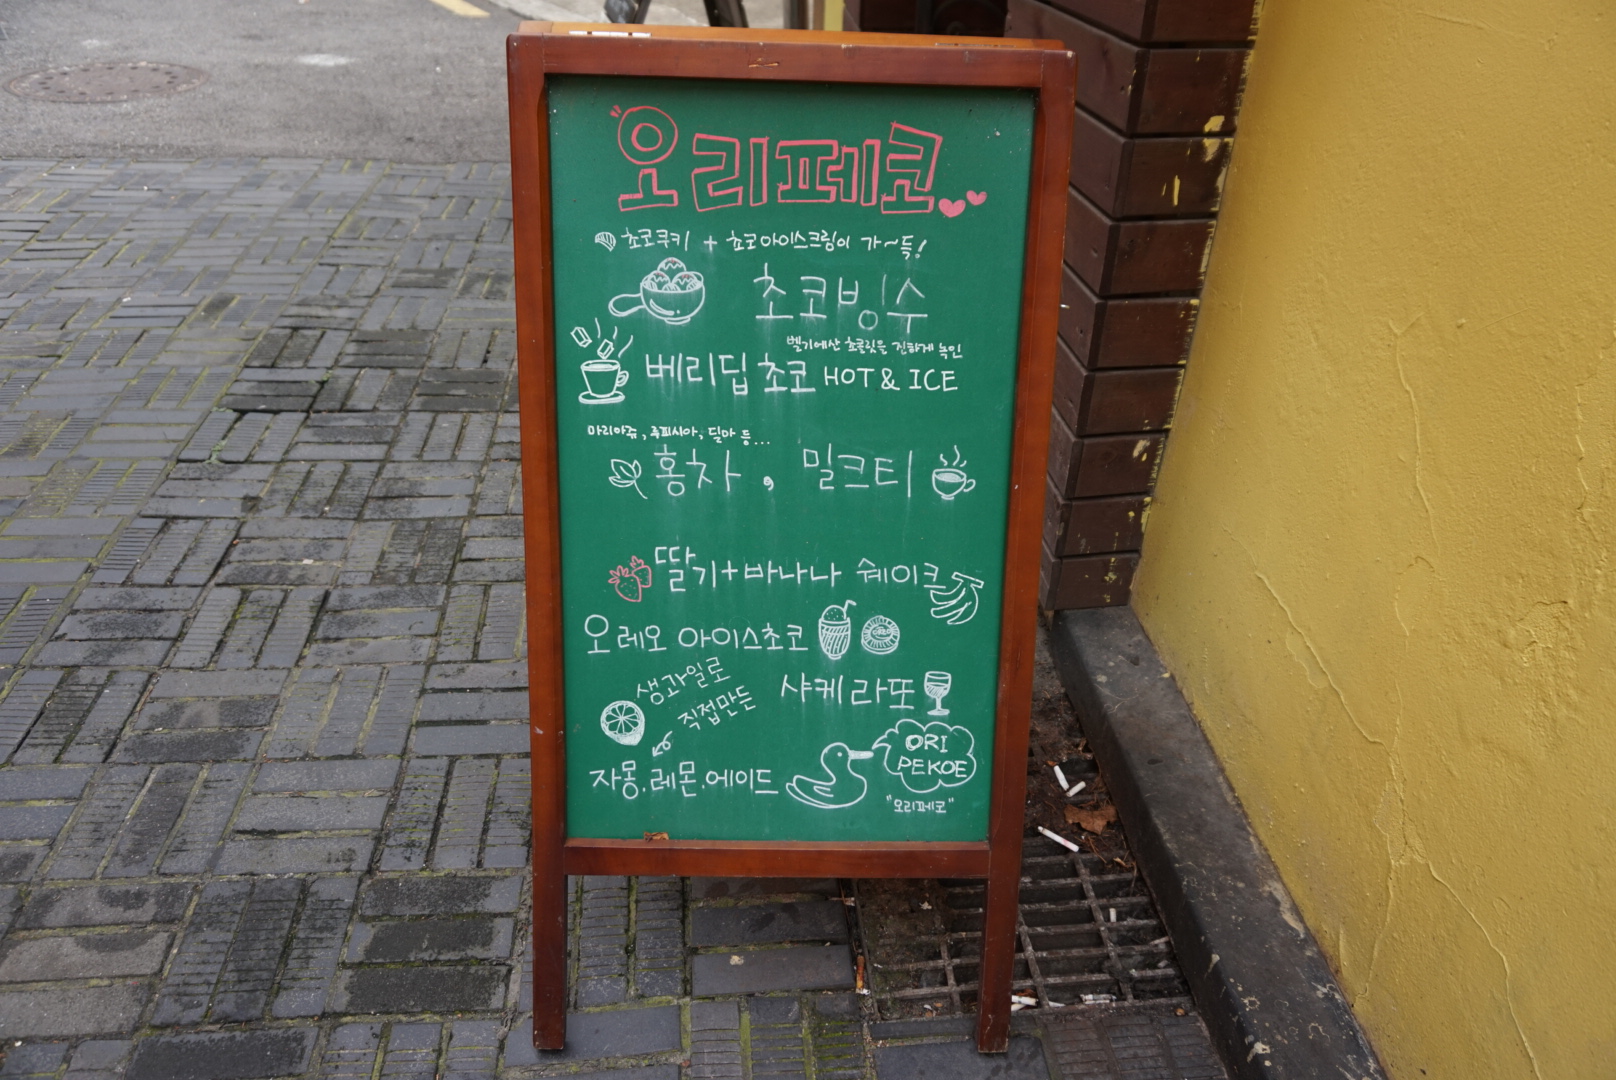 오리페코
초코쿠키 + 초코아이스크림이 가~득!
초코빙수
벨기에산 초콜릿을 진하게 녹인
베리딥초코 HOT & ICE
마리아쥬, 루피시아, 딜마 등...
홍차, 밀크티
딸기+바나나 쉐이크
오레오 아이스초코
OREO
생과일로
직접만든
샤케라또
자몽.레몬.에이드
ORI
PEKOE
"오리페코"